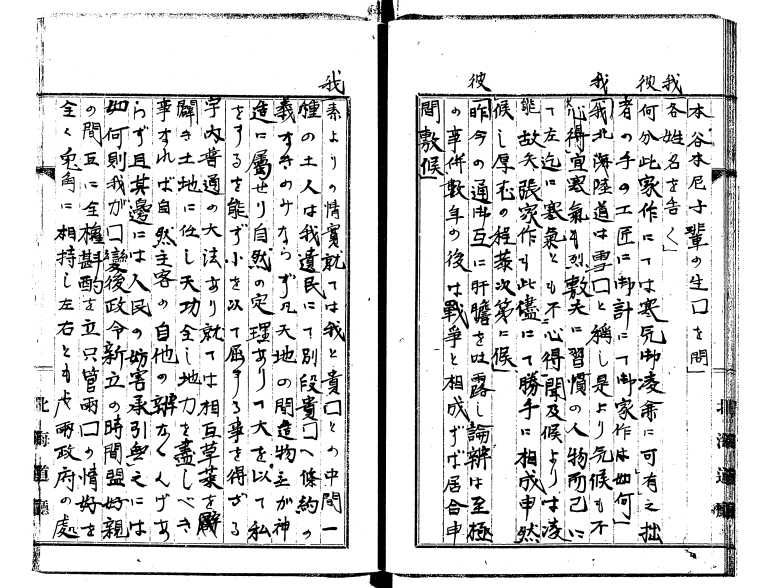 本谷本尼子輩の生口を問」
我
各姓名を告く」
彼
何分此家作にては寒気御凌兼に可有之拙
者の手の工匠に御計にて御家作は如何」
我
我北海陸道は雪口と稱し是より気候も不
心得宜寒氣も烈敷夫に習慣の人物而已に
て左迄に寒氣とも不心得聞及候よりは凌
能故矢張家作も此儘にて勝手に相成申然
候し厚意の程
次第に候」
彼
昨今の通御互に肝膽を吐露し論辨は至極
の事併數年の後は戰爭と相成ずば居合申
間敷候」
我
素よりの情實就ては我と貴口との中間一
種の土人は我遺民にて別段貴口へ條約の
義すきのみならず凡天地の間造物主が神
造に屬せり自然の定理ありて大を以て私
をするを能ず小を以て屈する事を得ざる
宇内普通の大法あり就ては相互草莱を闢
闢き土地に任し天功全し地力を盡しべき
事すれば自然主客の自他の辨なくんばあ
らず且其邊には人民の妨害承引無之には
如何則我が口變後政令新立の時間盟好親
の間互に全権斟酌を立只管兩口の情好を
全く兎角に相持し左右とも
兩政府の處
北海道廳
北海道廳